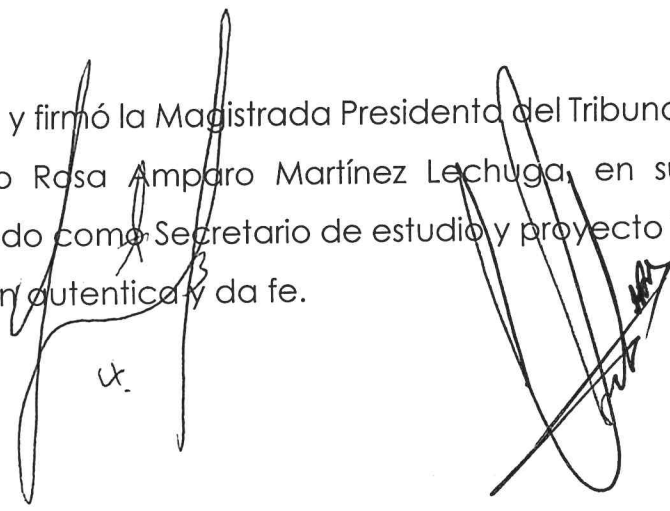 y firmó la Magistrada Presidenta del Tribuna
o Rosa Amparo Martínez Lechuga, en su
do como Secretario de estudio y proyecto
n autentica y da fe.